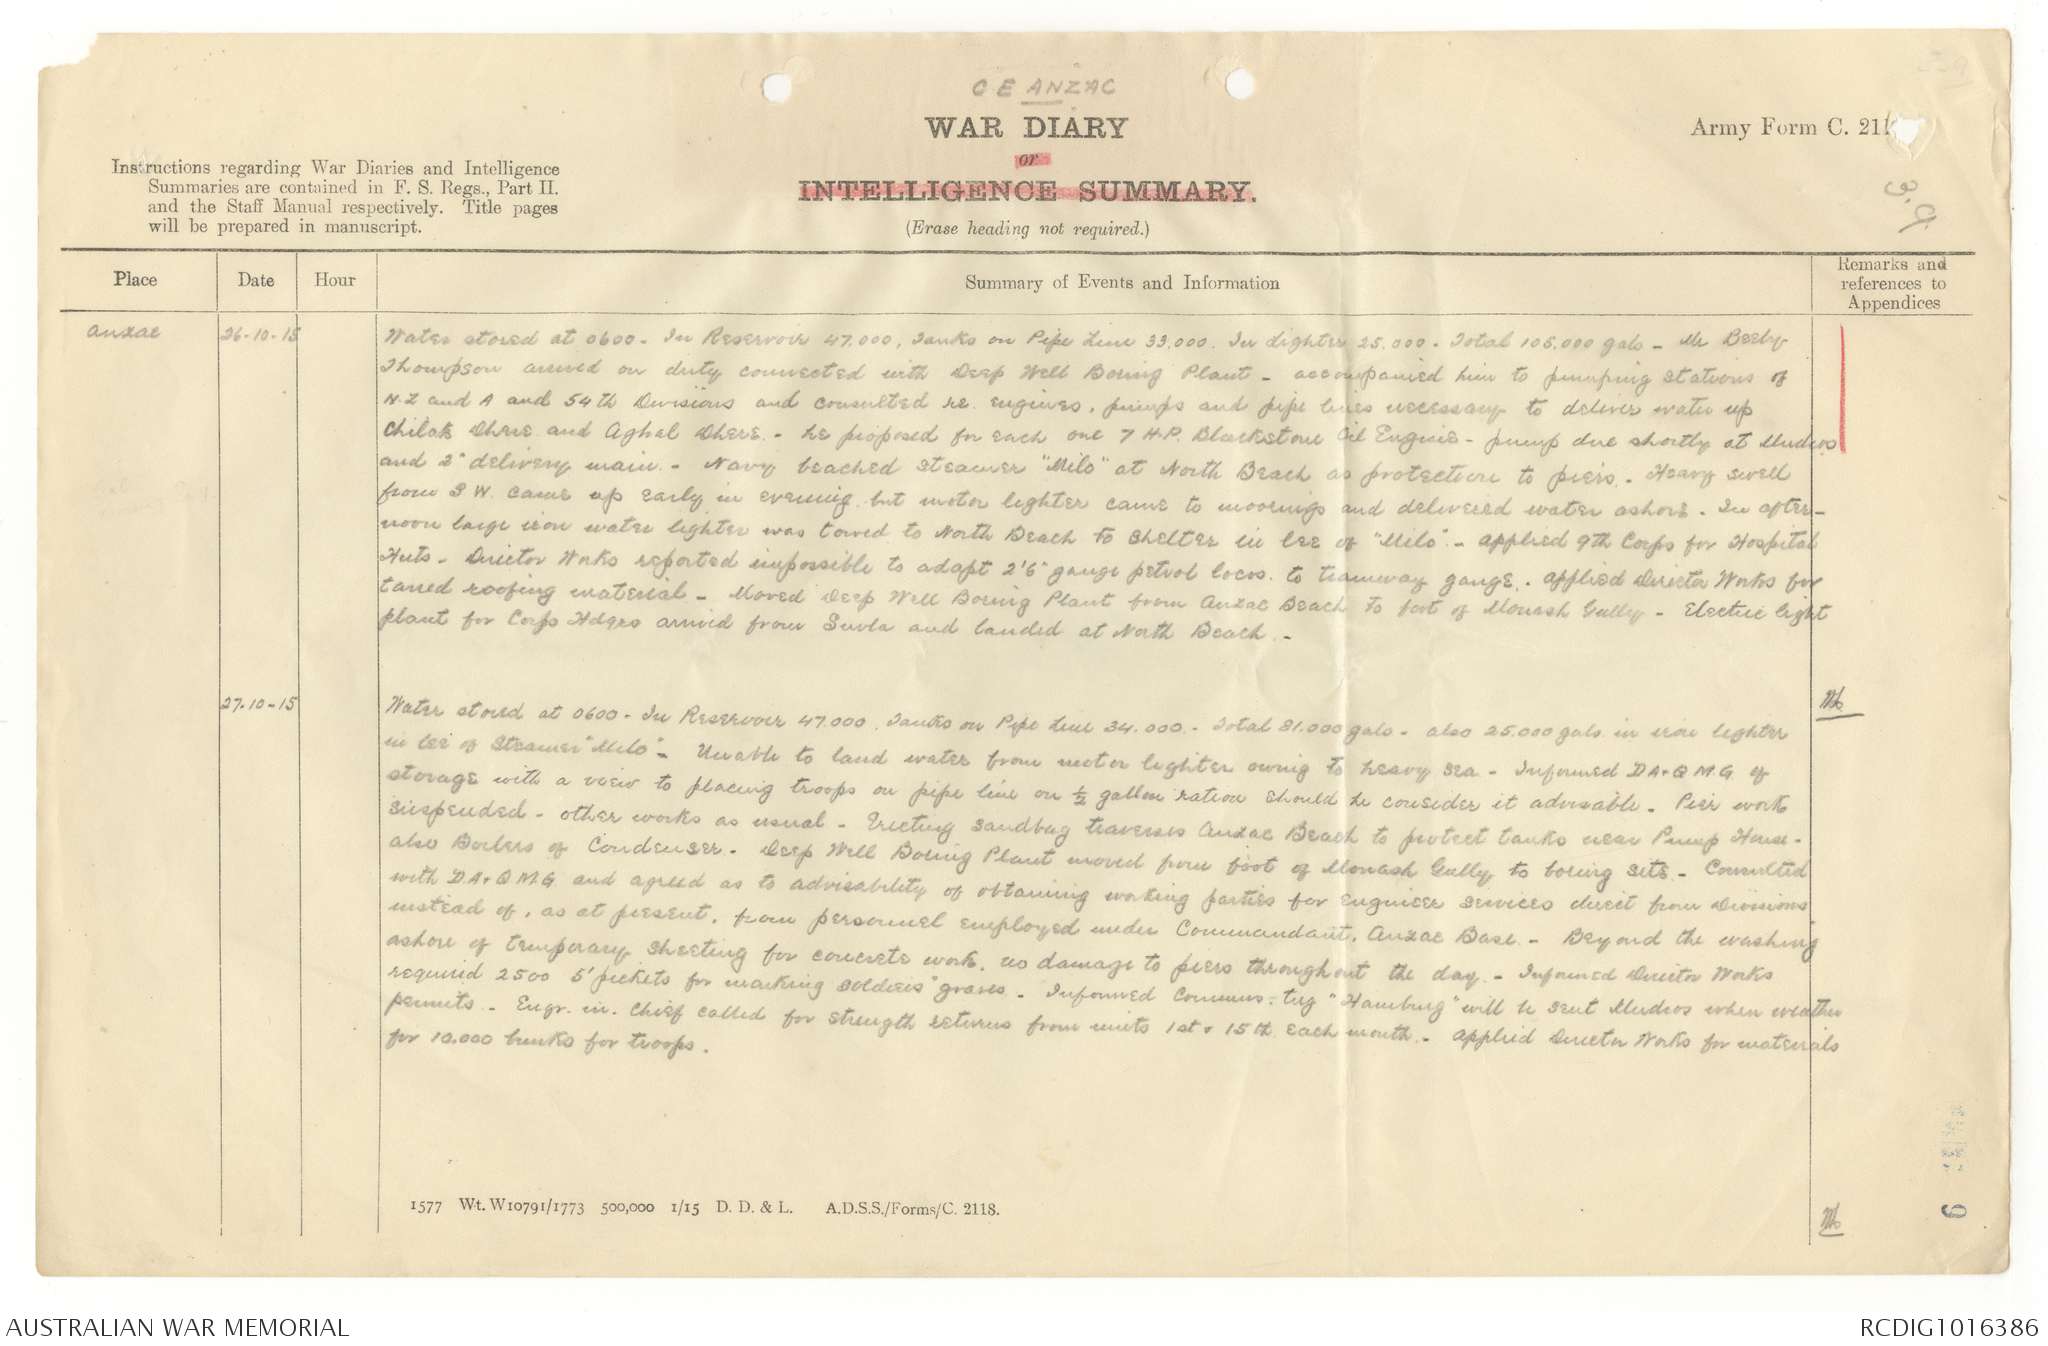 C E ANZAC
WAR DIARY
or
INTELLIGENCE SUMMARY.
(Erase heading not required.)
Army Form C. 211
Instructions regarding War Diaries and Intelligence
Summaries are contained in F. S. Regs., Part II.
and the Staff Manual respectively. Title pages
will be prepared in manuscript.
Place
Date
Hour
Summary of Events and Information
Remarks and
references to
Appendices
Anzac 26-10-15
Water stored at 0600 - In Reservoir 47,000, Tanks on Pipe Line 33,000. In Lighter 25,000 - Total 105,000 gals - Mr Beeby
Thompson arrived on duty connected with Deep Well Boring Plant - accompanied him to pumping stations of
N.Z and A and 54th Divisions and consulted re. engines, pumps and pipe lines necessary to deliver water up
Chilak Dhere and Aghal Dhere. - he proposed for each one 7 H.P. Blackstone Oil Engine - pump due shortly at Mudros
and 2" delivery main. - Navy beached steamer "Milo" at North Beach as protection to piers. - Heavy swell
from S W. came up early in evening but motor lighter came to moorings and delivered water ashore. - In after-
noon large iron water lighter was towed to North Beach to shelter in lee of "Milo". - Applied 9th Corps for Hospital
Huts - Director Works reported impossible to adapt 2'6" gauge petrol locos. to tramway gauge. - Applied Director Works for
tarred roofing material - Moved Deep Well Boring Plant from Anzac Beach to foot of Monash Gully - Electric light
plant for Corps Hdqrs arrived from Suvla and landed at North Beach. -
27-10-15
Water stored at 0600 - In Reservoir 47,000, Tanks on Pipe Line 34,000. - Total 81,000 gals - also 25,000 gals. in iron lighter
in lee of Steamer "Milo" - Unable to land water from motor lighter owing to heavy sea - Informed DA+QMG of
storage with a view to placing troops on pipe line on ½ gallon ration should he consider it advisable - Pier work
suspended - other works as usual - Erecting sandbag traverses Anzac Beach to protect tanks near Pump House -
also Boilers of Condenser - Deep Well Boring Plant moved from foot of Monash Gully to boring site - Consulted
with DA+QMG and agreed as to advisability of obtaining working parties for engineer services direct from Divisions
instead of, as at present, from personnel employed under Commandant, Anzac Base. - Beyond the washing
ashore of temporary sheeting for concrete work, no damage to piers throughout the day. - Informed Director Works
required 2500 5' pickets for marking soldiers' graves - Informed Comms: tug "Hamburg" will be sent Mudros when weather
permits - Engr. in. Chief called for strength returns from units 1st + 15th each month - Applied Director Works for materials
for 10,000 bunks for troops.
1577 Wt. W10791/1773 500,000 1/15 D. D. & L. A.D.S.S./Forms/C. 2118.
6
AUSTRALIAN WAR MEMORIAL
RCDIG1016386